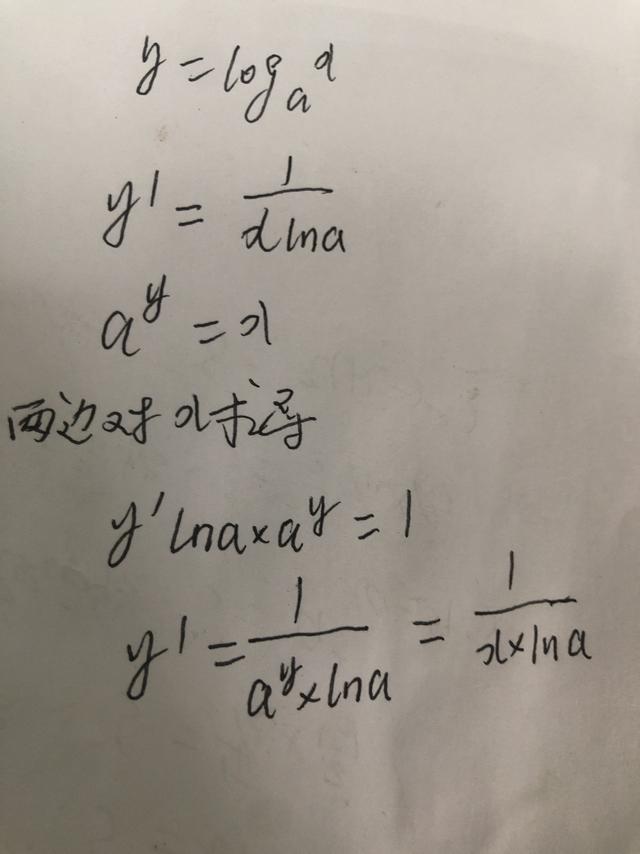 y = logₐx
y' = 1/(x ln a)
a^y = x
两边对x求导
y' ln a × a^y = 1
y' = 1/(a^y × ln a) = 1/(x × ln a)